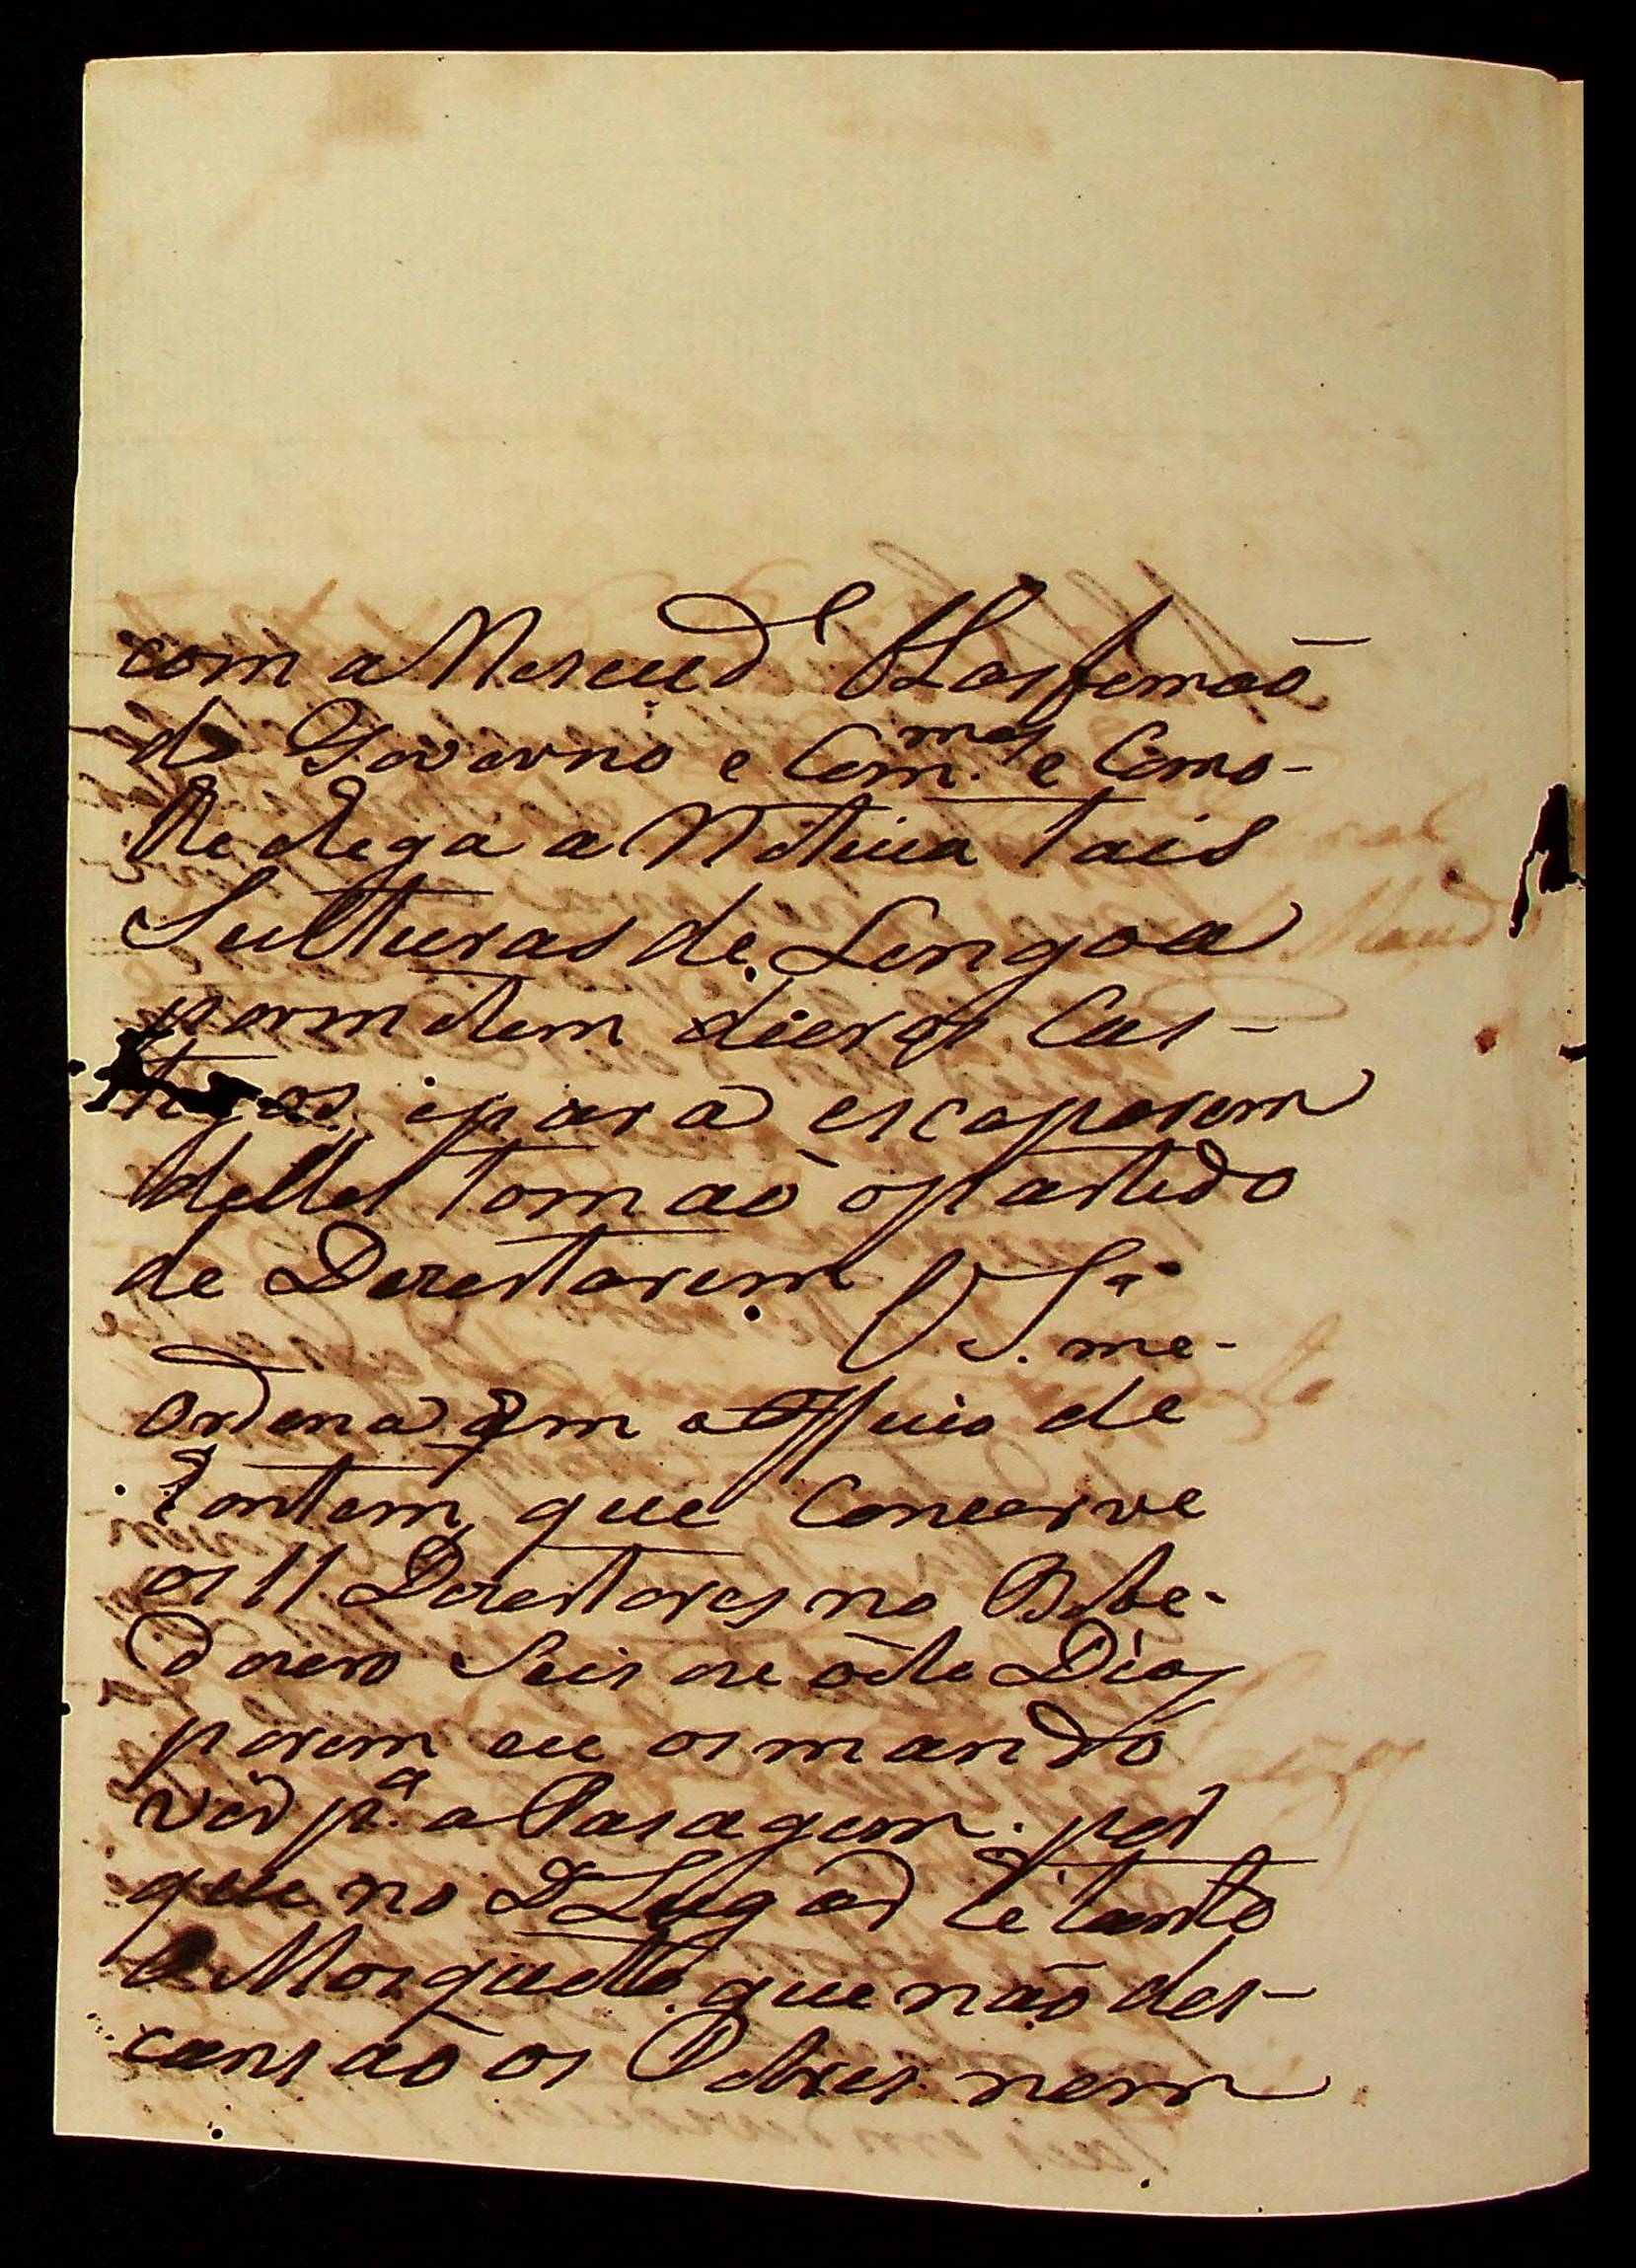 com a Neseced.e Blasfemaõ
do Governo e Com.mas e Como
lhe chega a Noticia tais
Sulturas de Lengoa
parmetem dieros Cas-
tigos, ipara escaparem
delles tomaõ opartido
de Derestarem V S.a
S. me-
ordena em o Officio de
Hontem, que Concerve
os 11 Derestores no Bebe-
douro Seis ou oito Dias
porem eu os mando
vir p.a a Pasagem. por
que no D Lugar hé tanto
o Morquito. que não des-
cansaõ os Pobres nem